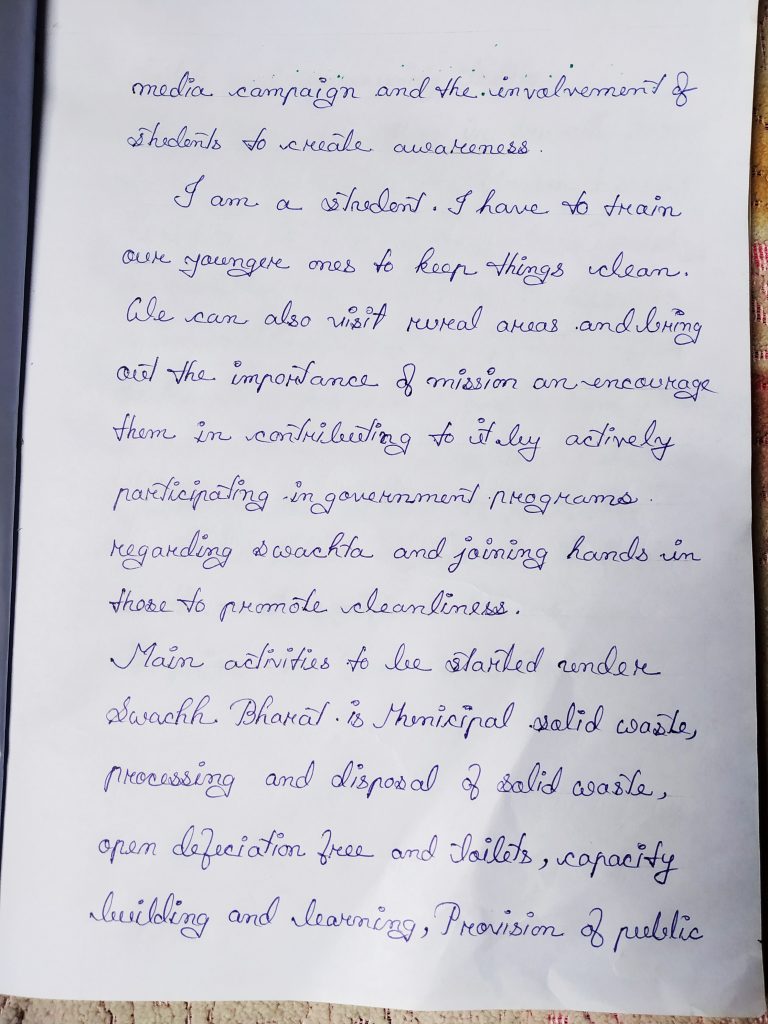 media campaign and the involvement of
students to create awareness.
I am a student. I have to train
our younger ones to keep things clean.
We can also visit rural areas and bring
out the importance of mission an encourage
them in contributing to it by actively
participating in government programs.
regarding swachta and joining hands in
those to promote cleanliness.
Main activities to be started under
Swachh Bharat is Municipal solid waste,
processing and disposal of solid waste,
open defeciation free and toilets, capacity
building and learning, Provision of public